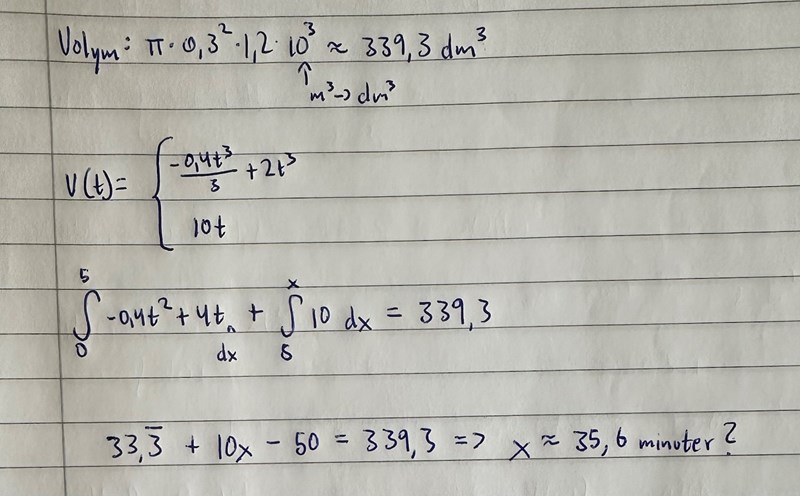 Volym: π · 0,3² · 1,2 · 10³ ≈ 339,3 dm³
↑
m³→dm³
V(t) = { -0,4t³/3 + 2t³
10t
∫₀⁵ -0,4t² + 4t dx + ∫₅ˣ 10 dx = 339,3
33,3̅ + 10x - 50 = 339,3 => x ≈ 35,6 minuter?